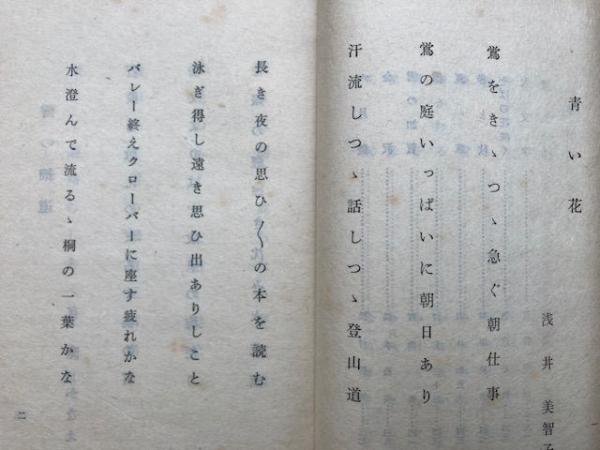 青い花
浅井美智子
鶯をきゝつゝ急ぐ朝仕事
鶯の庭いっぱいに朝日あり
汗流しつゝ話しつゝ登山道
長き夜の思ひ〳〵の本を読む
泳ぎ得し遠き思ひ出ありしこと
バレー終えクローバーに座す疲れかな
水澄んで流るゝ桐の一葉かな
二